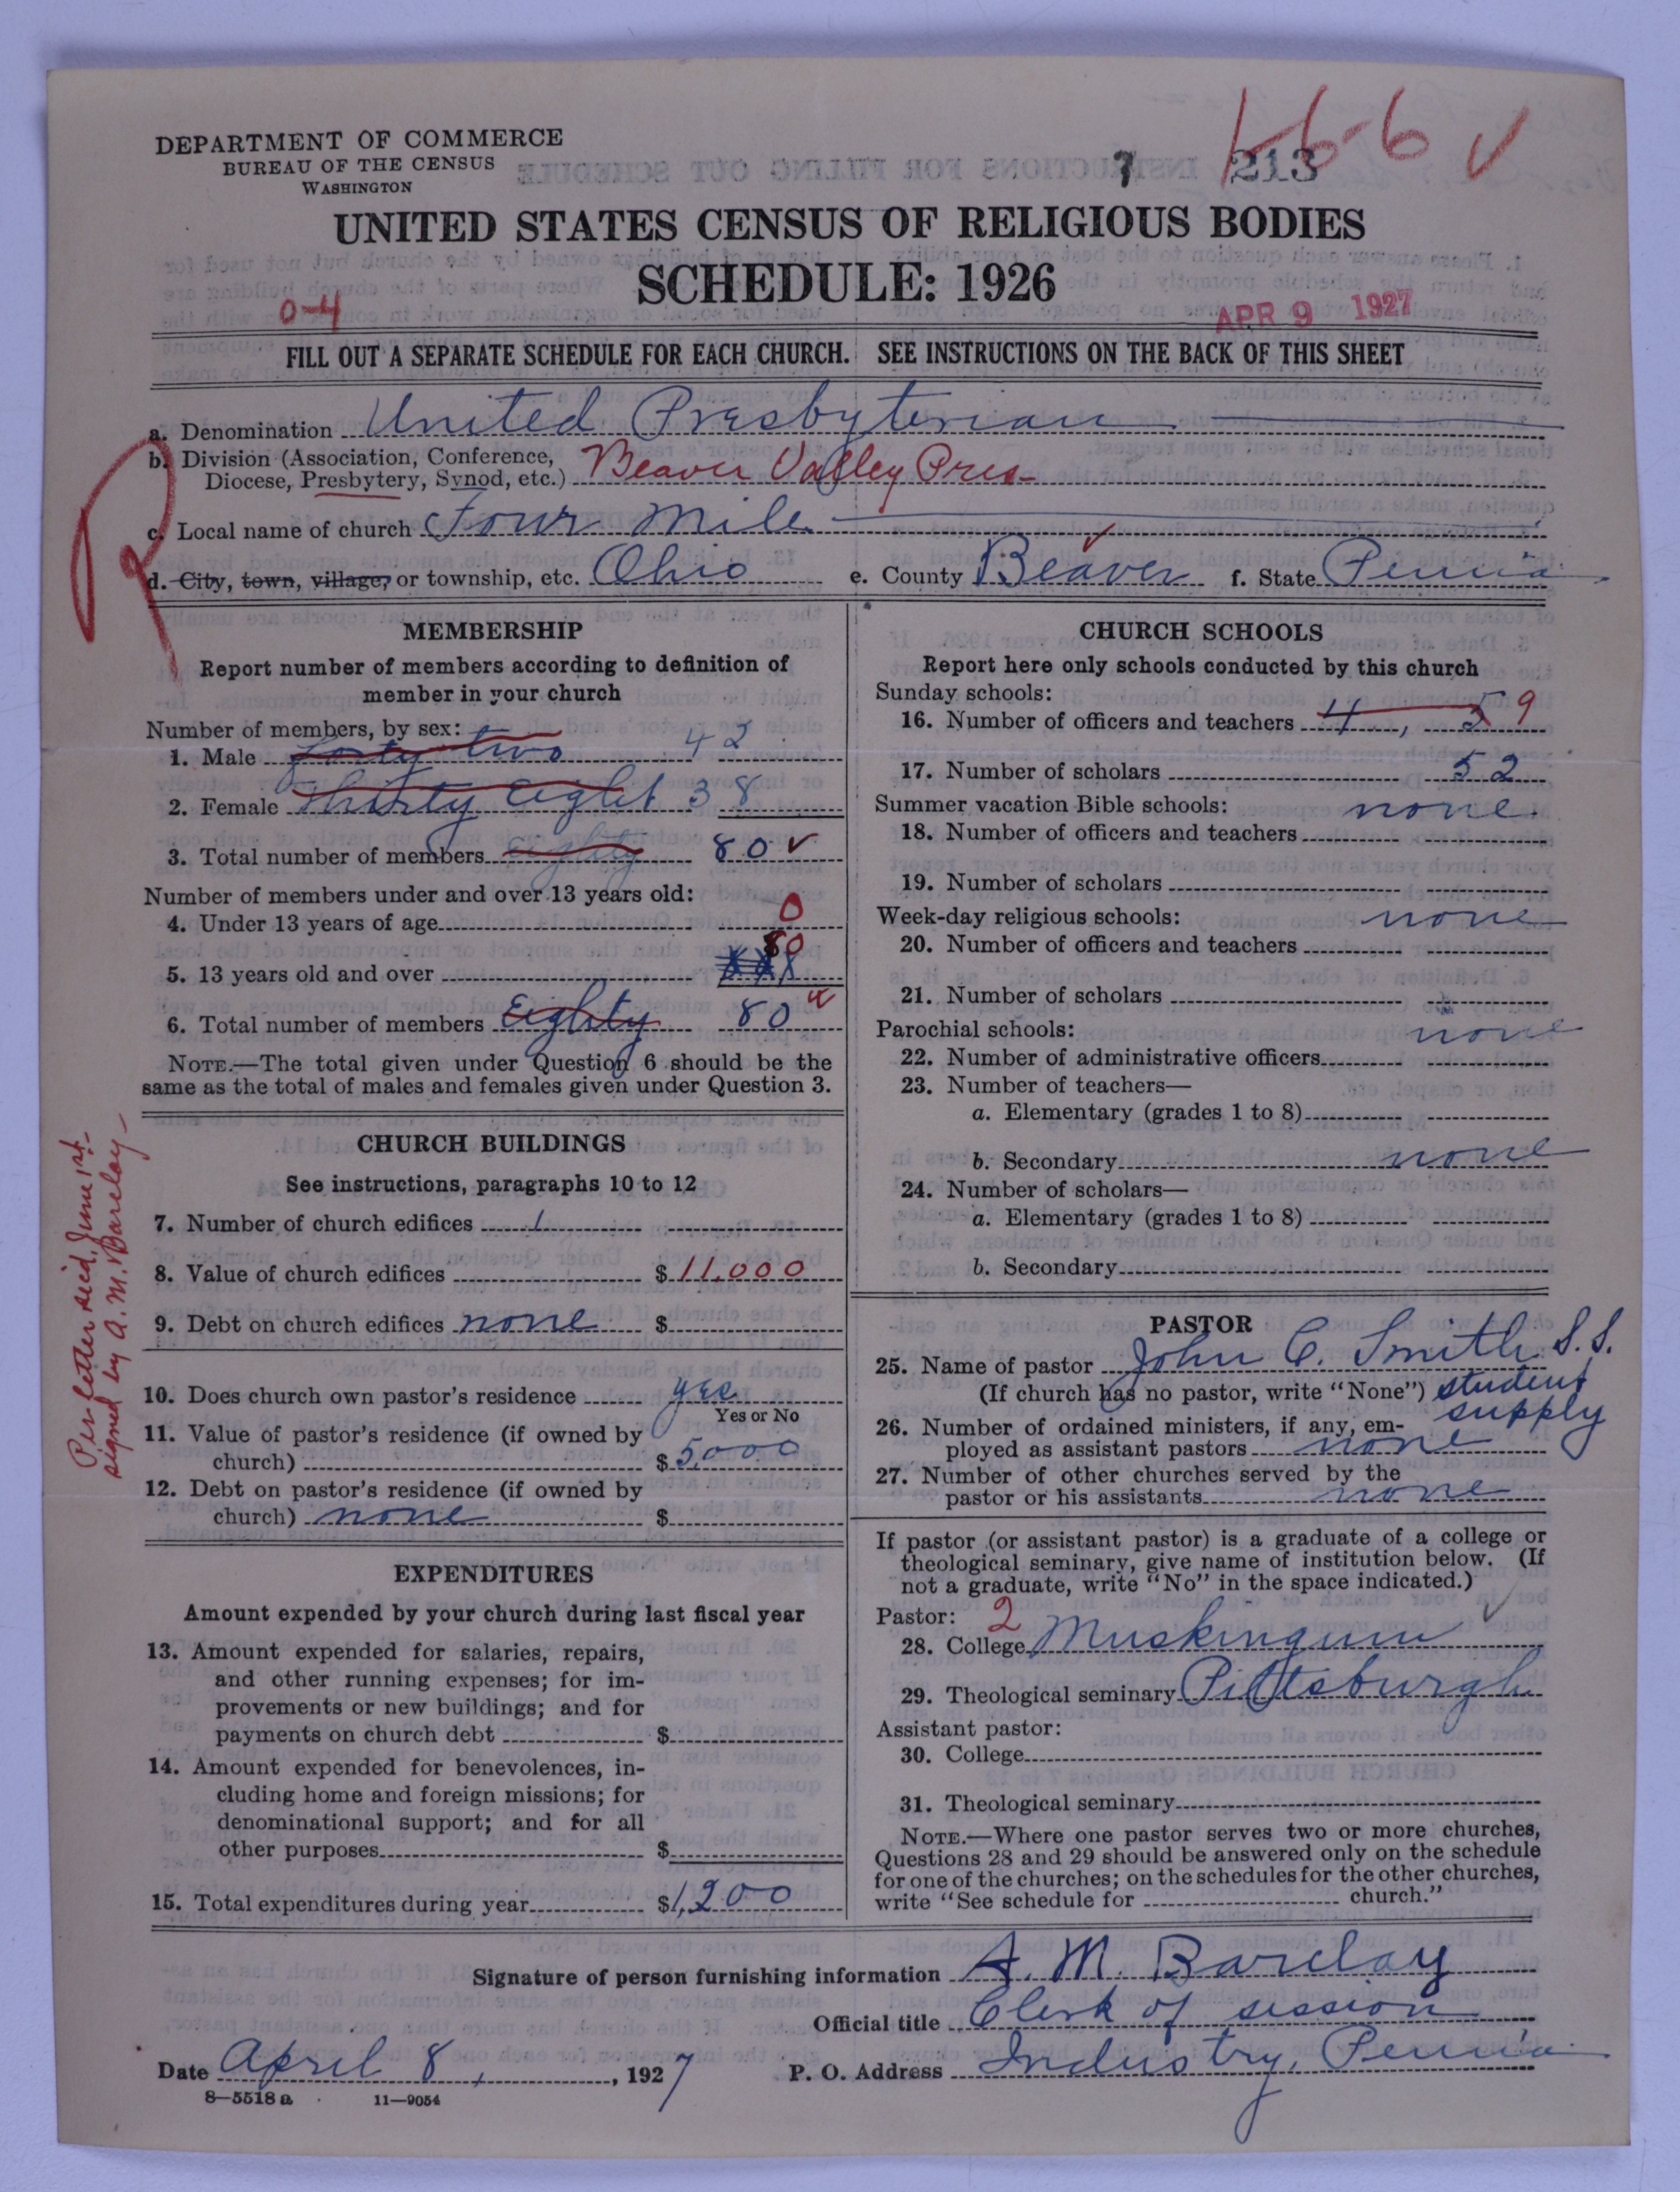 1-6-6 ✓
DEPARTMENT OF COMMERCE
BUREAU OF THE CENSUS
WASHINGTON
7 213
UNITED STATES CENSUS OF RELIGIOUS BODIES
SCHEDULE: 1926
0-4
APR 9 1927
FILL OUT A SEPARATE SCHEDULE FOR EACH CHURCH. SEE INSTRUCTIONS ON THE BACK OF THIS SHEET
a. Denomination United Presbyterian
b. Division (Association, Conference,
Diocese, Presbytery, Synod, etc.) Beaver Valley Pres-
c. Local name of church Four Mile
d. City, town, village, or township, etc. Ohio e. County Beaver f. State Penn'a
R
MEMBERSHIP
Report number of members according to definition of
member in your church
Number of members, by sex:
1. Male forty two 42
2. Female Thirty Eight 38
3. Total number of members eighty 80 ✓
Number of members under and over 13 years old:
4. Under 13 years of age 0
5. 13 years old and over 80
6. Total number of members Eighty 80
NOTE.—The total given under Question 6 should be the
same as the total of males and females given under Question 3.
CHURCH BUILDINGS
See instructions, paragraphs 10 to 12
7. Number of church edifices 1
8. Value of church edifices $ 11,000
9. Debt on church edifices none $
10. Does church own pastor's residence yes
Yes or No
11. Value of pastor's residence (if owned by
church) $ 5000
12. Debt on pastor's residence (if owned by
church) none $
Per letter rec'd, June 1st-
signed by A. M. Barclay-
EXPENDITURES
Amount expended by your church during last fiscal year
13. Amount expended for salaries, repairs,
and other running expenses; for im-
provements or new buildings; and for
payments on church debt $
14. Amount expended for benevolences, in-
cluding home and foreign missions; for
denominational support; and for all
other purposes $
15. Total expenditures during year $1,200
CHURCH SCHOOLS
Report here only schools conducted by this church
Sunday schools:
16. Number of officers and teachers 4, 5 9
17. Number of scholars 52
Summer vacation Bible schools: none
18. Number of officers and teachers
19. Number of scholars
Week-day religious schools: none
20. Number of officers and teachers
21. Number of scholars
Parochial schools: none
22. Number of administrative officers
23. Number of teachers—
a. Elementary (grades 1 to 8)
b. Secondary none
24. Number of scholars—
a. Elementary (grades 1 to 8)
b. Secondary
PASTOR
25. Name of pastor John C. Smith S.S.
(If church has no pastor, write "None") student
supply
26. Number of ordained ministers, if any, em-
ployed as assistant pastors none
27. Number of other churches served by the
pastor or his assistants none
If pastor (or assistant pastor) is a graduate of a college or
theological seminary, give name of institution below. (If
not a graduate, write "No" in the space indicated.)
Pastor: 2 ✓
28. College Muskingum
29. Theological seminary Pittsburgh
Assistant pastor:
30. College
31. Theological seminary
NOTE.—Where one pastor serves two or more churches,
Questions 28 and 29 should be answered only on the schedule
for one of the churches; on the schedules for the other churches,
write "See schedule for church."
Signature of person furnishing information A. M. Barclay
Official title Clerk of session
Date April 8, 1927 P. O. Address Industry, Penn'a
8—5518 a 11—9054